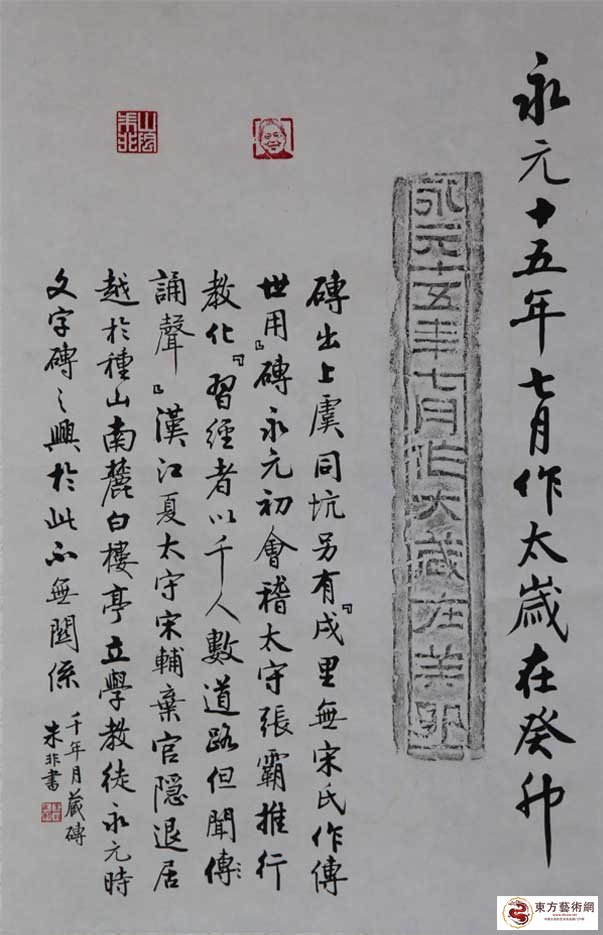 永元十五年七月作太嵗在癸卯
永元十五年七月作大歲在癸卯
磚出上虞同坑另有『戌里無宋氏作傳
世用』磚永元初會稽太守張霸推行
教化『習經者以千人數道路但聞傳
誦聲』漢江夏太守宋輔棄官隠退居
越於種山南麓白樓亭立學教徒永元時
文字磚之興於此不無関係
千年月藏磚
朱非書
東方藝術網